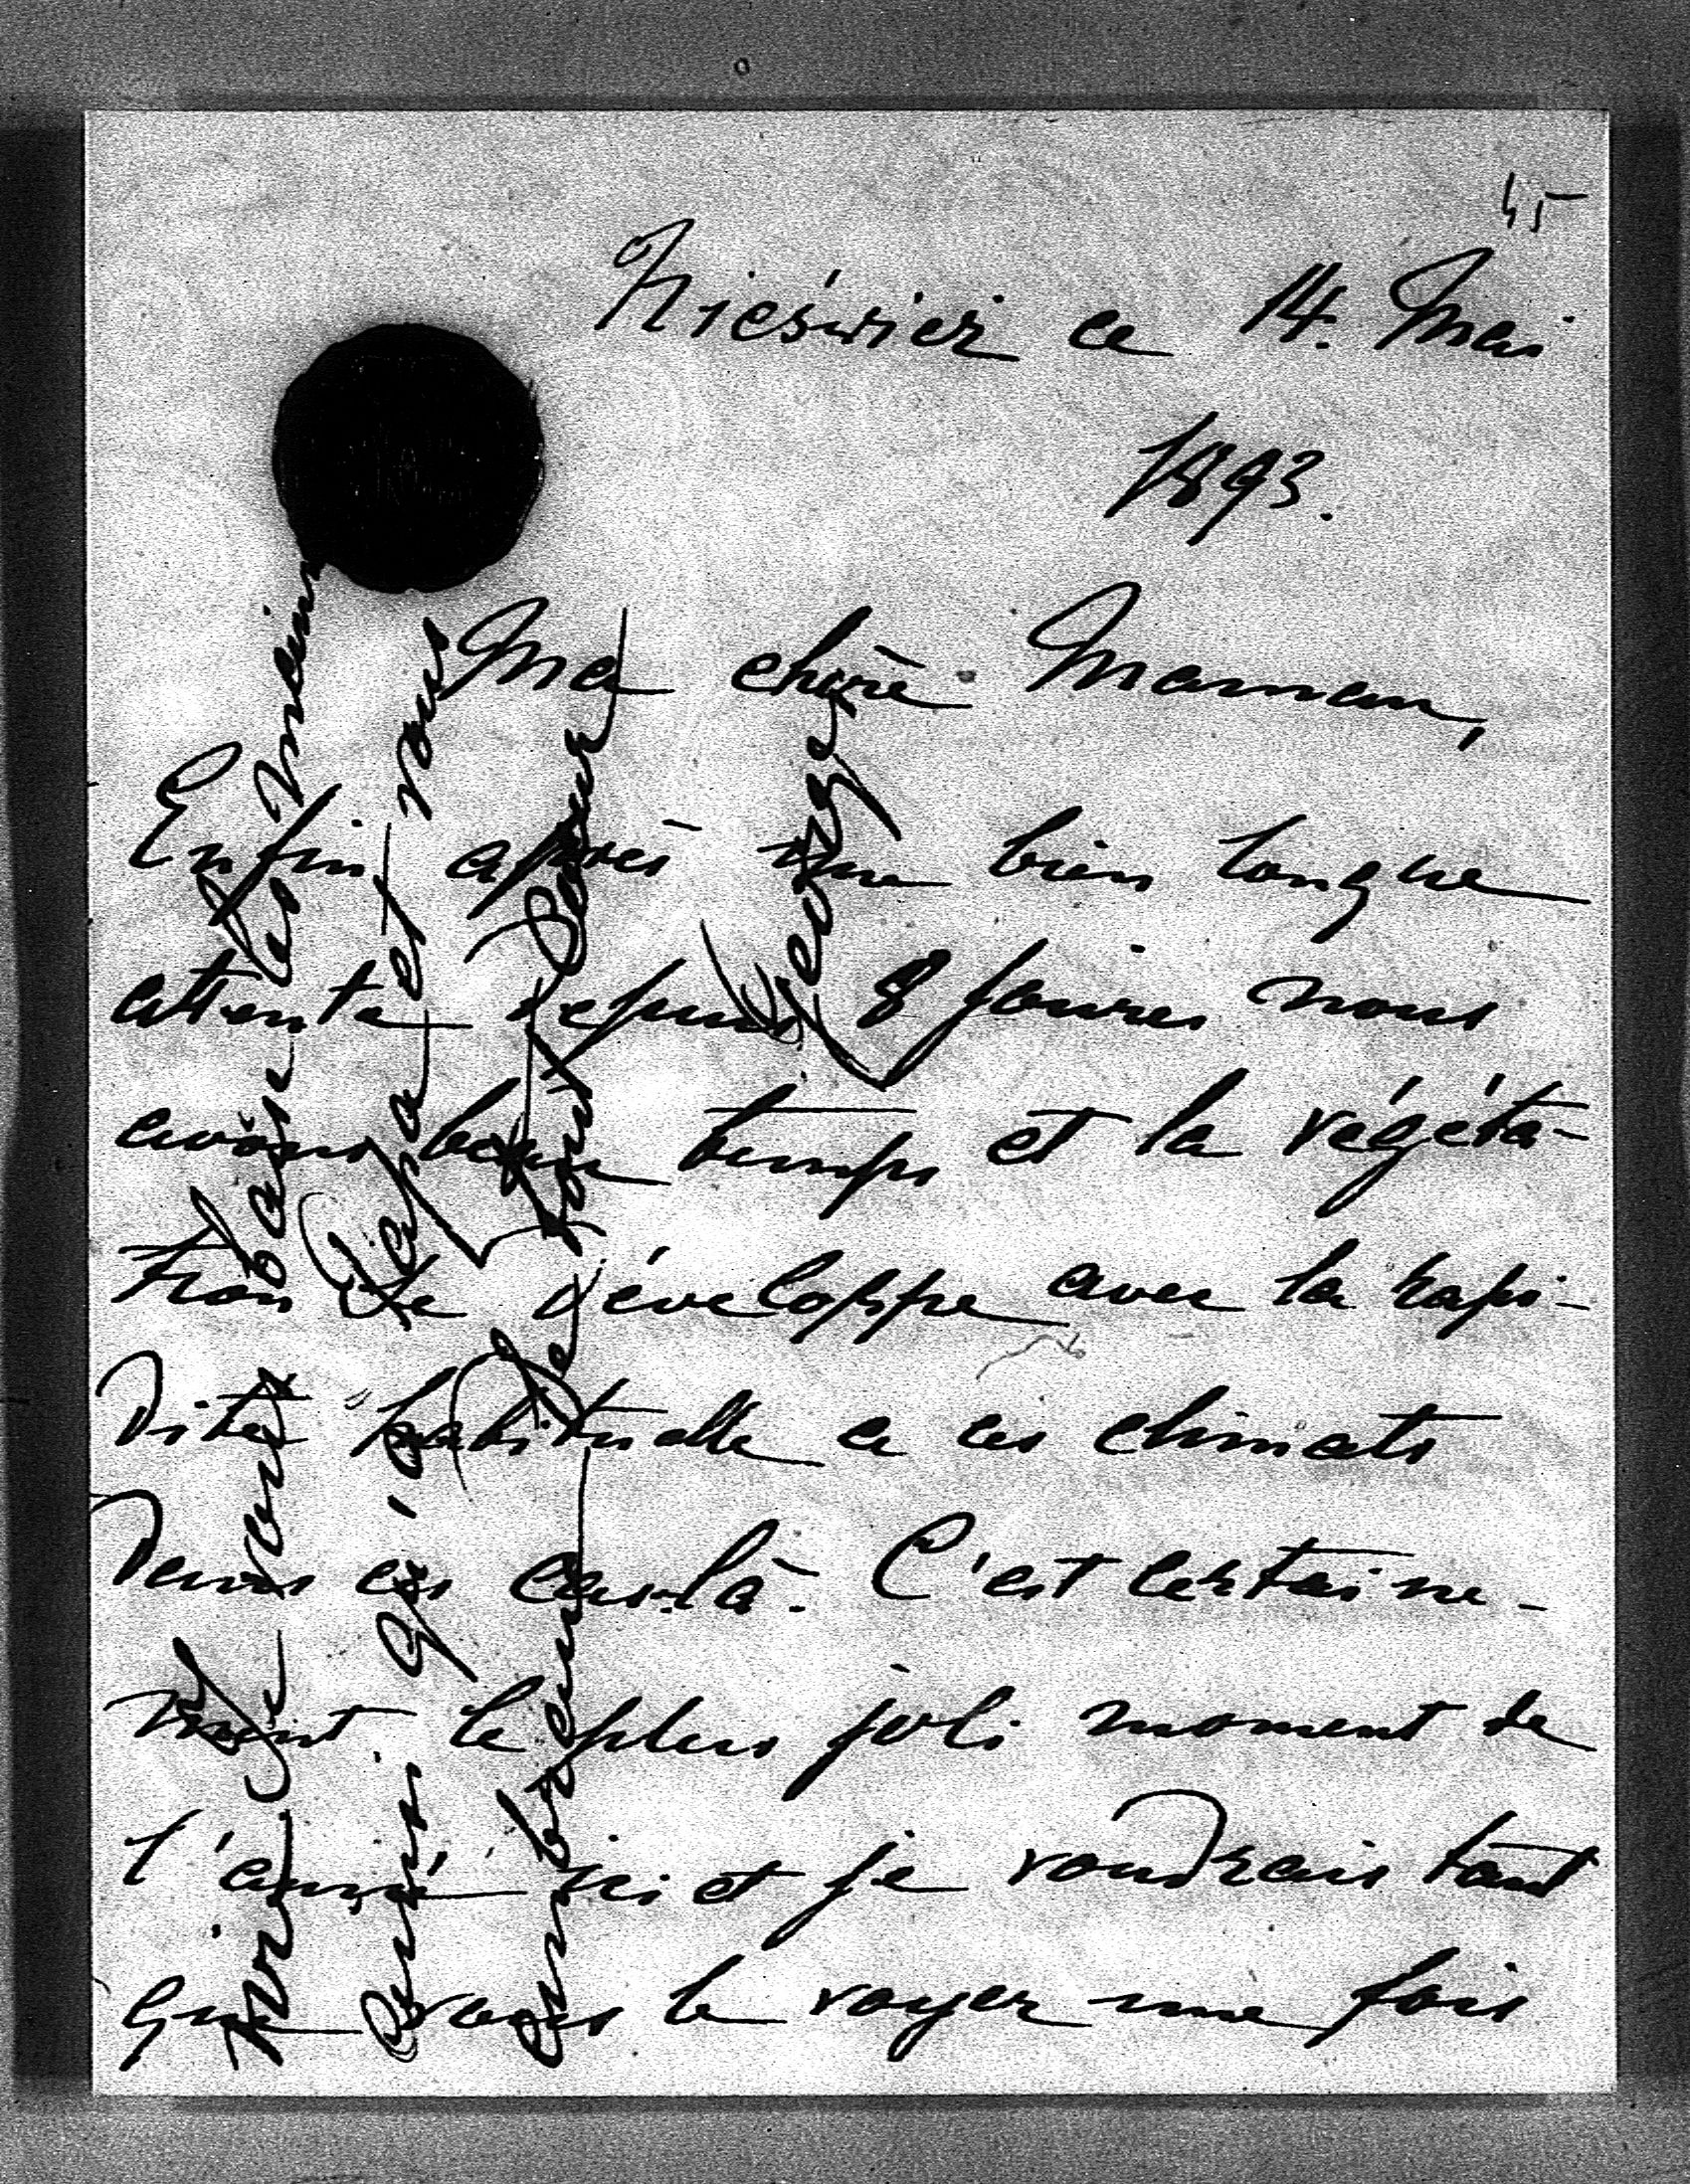 45
Nieśwież ce 14. Mai
1893.
Ma chère Maman,
Enfin après une bien longue
attente depuis 8 jours nous
avons beau temps et la végéta-
tion se développe avec la rapi-
dité habituelle a ces climats
dans ces cas-là. C'est certaine-
ment le plus joli moment de
l'année ici et je voudrais tant
que vous le voyez une fois
Je vous baise les mains
ainsi qu'a Papa et vous
embrasse de tout coeur
George